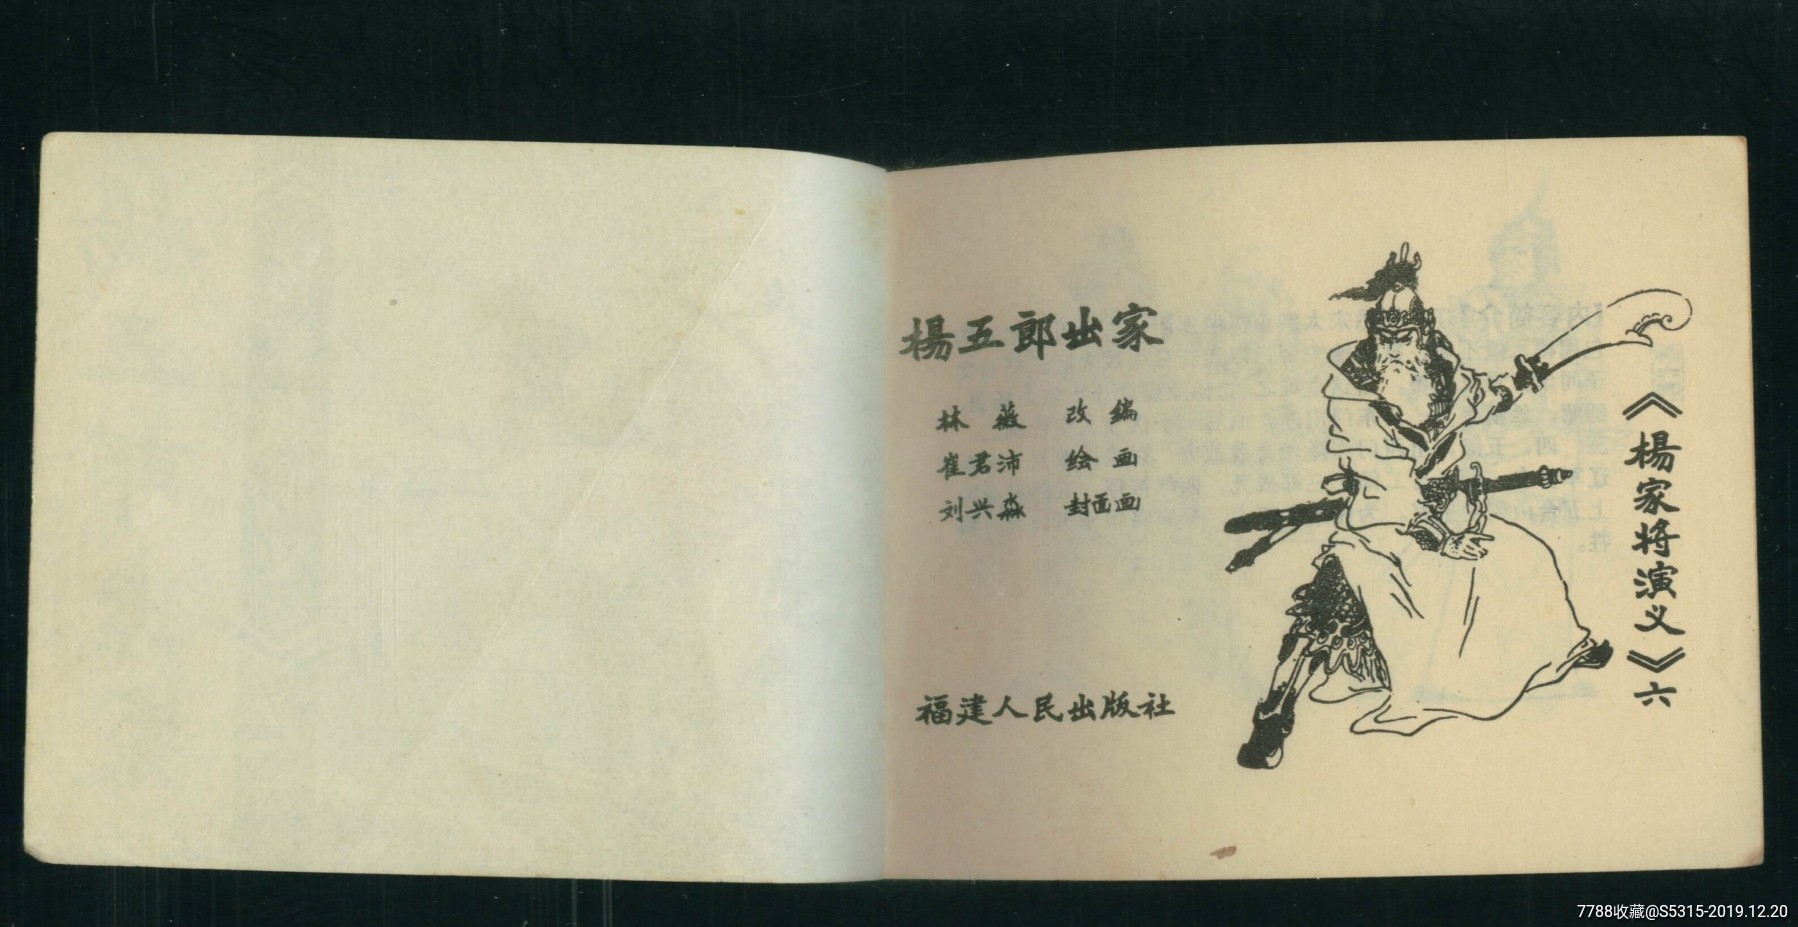 楊五郎出家
林薇 改编
崔君沛 绘画
刘兴淼 封面画
福建人民出版社
《楊家将演义》六
7788收藏@S5315-2019.12.20